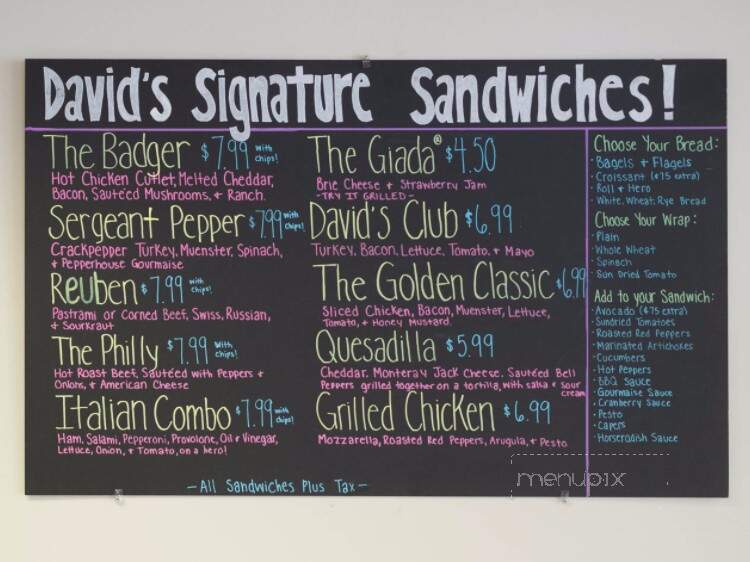 David's Signature Sandwiches!
The Badger $7.99 with chips!
Hot Chicken Cutlet, Melted Cheddar,
Bacon, Sauteéd Mushrooms, & Ranch.
Sergeant Pepper $7.99 with chips!
Crackpepper Turkey, Muenster, Spinach,
& Pepperhouse Gourmaise
Reuben $7.99 with chips!
Pastrami or Corned Beef, Swiss, Russian,
& Sourkraut
The Philly $7.99 with chips!
Hot Roast Beef, Sauteéd with Peppers &
Onions, & American Cheese
Italian Combo $7.99 with chips!
Ham, Salami, Pepperoni, Provolone, Oil & Vinegar,
Lettuce, Onion, & Tomato, on a hero!
The Giada® $4.50
Brie Cheese & Strawberry Jam
-TRY IT GRILLED-
David's Club $6.99
Turkey, Bacon, Lettuce, Tomato, & Mayo
The Golden Classic $6.99
Sliced Chicken, Bacon, Muenster, Lettuce,
Tomato, & Honey Mustard.
Quesadilla $5.99
Cheddar, Monteray Jack Cheese, Sauteéd Bell
Peppers grilled together on a tortilla, with salsa & sour
cream
Grilled Chicken $6.99
Mozzarella, Roasted Red Peppers, Arugula, & Pesto
Choose Your Bread:
· Bagels & Flagels
· Croissant ($.75 extra)
· Roll & Hero
· White, Wheat, Rye Bread
Choose Your Wrap:
· Plain
· Whole Wheat
· Spinach
· Sun Dried Tomato
Add to your Sandwich:
· Avocado ($.75 extra)
· Sundried Tomatoes
· Roasted Red Peppers
· Marinated Artichokes
· Cucumbers
· Hot Peppers
· BBQ Sauce
· Gourmaise Sauce
· Cranberry Sauce
· Pesto
· Capers
· Horseradish Sauce
- All Sandwiches Plus Tax -
menupix